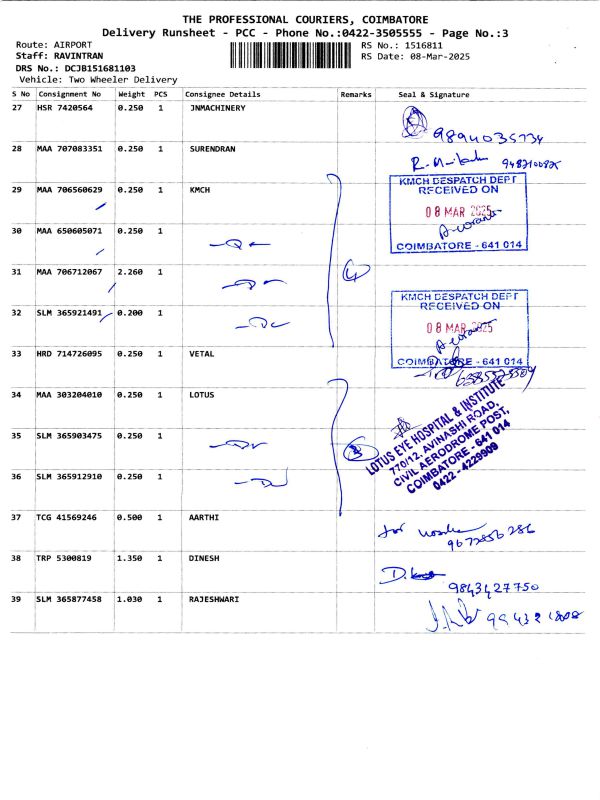 THE PROFESSIONAL COURIERS, COIMBATORE
Delivery Runsheet - PCC - Phone No.:0422-3505555 - Page No.:3
Route: AIRPORT
RS No.: 1516811
Staff: RAVINTRAN
RS Date: 08-Mar-2025
DRS No.: DCJB151681103
Vehicle: Two Wheeler Delivery
S No Consignment No Weight PCS Consignee Details Remarks Seal & Signature
27 HSR 7420564 0.250 1 JNMACHINERY
28 MAA 707083351 0.250 1 SURENDRAN
29 MAA 706560629 0.250 1 KMCH
KMCH DESPATCH DEPT
RECEIVED ON
08 MAR 2025
COIMBATORE - 641 014
30 MAA 650605071 0.250 1
31 MAA 706712067 2.260 1
4
32 SLM 365921491 0.200 1
KMCH DESPATCH DEPT
RECEIVED ON
08 MAR 2025
COIMBATORE - 641 014
33 HRD 714726095 0.250 1 VETAL
34 MAA 303204010 0.250 1 LOTUS
35 SLM 365903475 0.250 1
3
LOTUS EYE HOSPITAL & INSTITUTE
770/12, AVINASHI ROAD,
CIVIL AERODROME POST,
COIMBATORE - 641 014
0422 - 4229909
36 SLM 365912910 0.250 1
37 TCG 41569246 0.500 1 AARTHI
38 TRP 5300819 1.350 1 DINESH
9843427750
39 SLM 365877458 1.030 1 RAJESHWARI